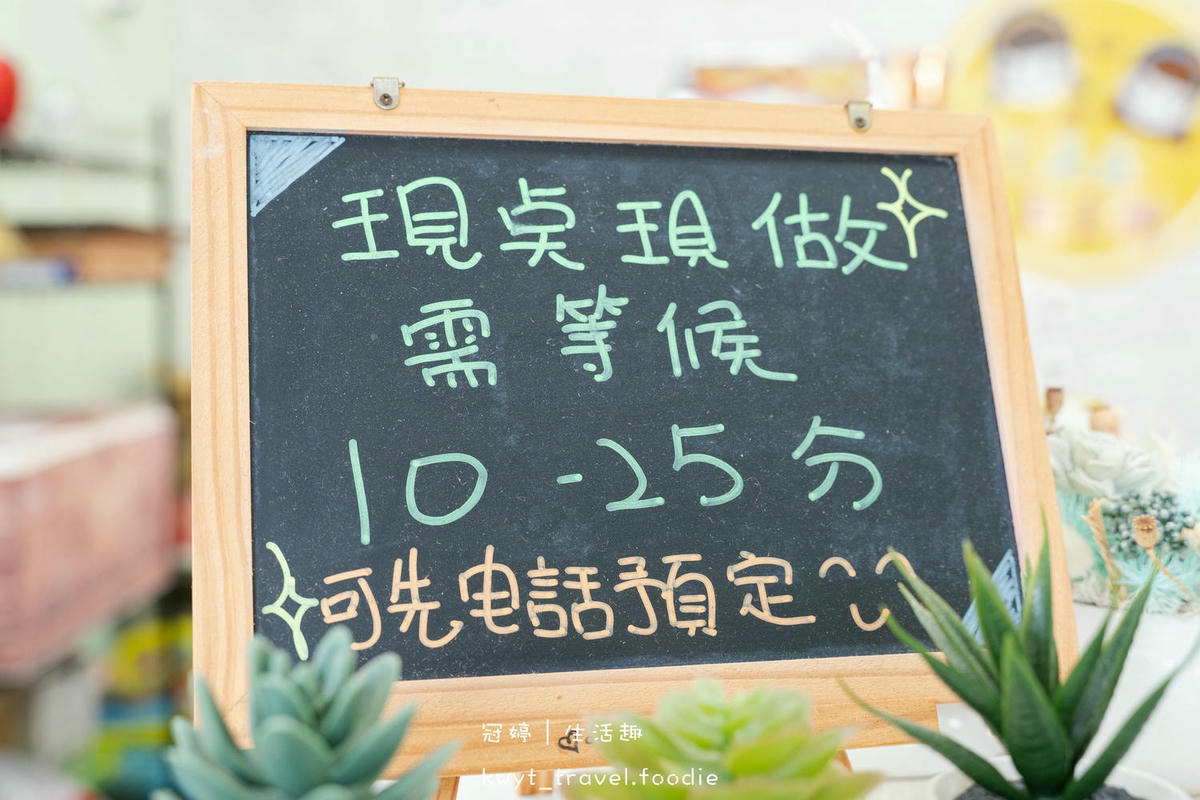 現点現做
需等候
10-25分
可先电話預定
冠婷|生活趣
kwyt_travel.foodie